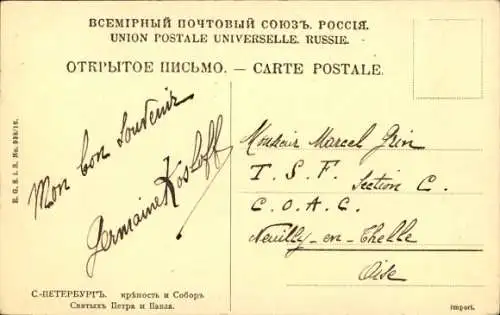 ВСЕМІРНЫЙ ПОЧТОВЫЙ СОЮЗЪ. РОССІЯ.
UNION POSTALE UNIVERSELLE. RUSSIE.
ОТКРЫТОЕ ПИСЬМО. — CARTE POSTALE.
Mon bon souvenir
Germaine Kosloff
Monsieur Marcel Grin
T. S. F.
Section C.
C. O. A. C.
Neuilly-en-Thelle
Oise
С.-ПЕТЕРБУРГЪ. крѣпость и Соборъ
Святыхъ Петра и Павла.
import.